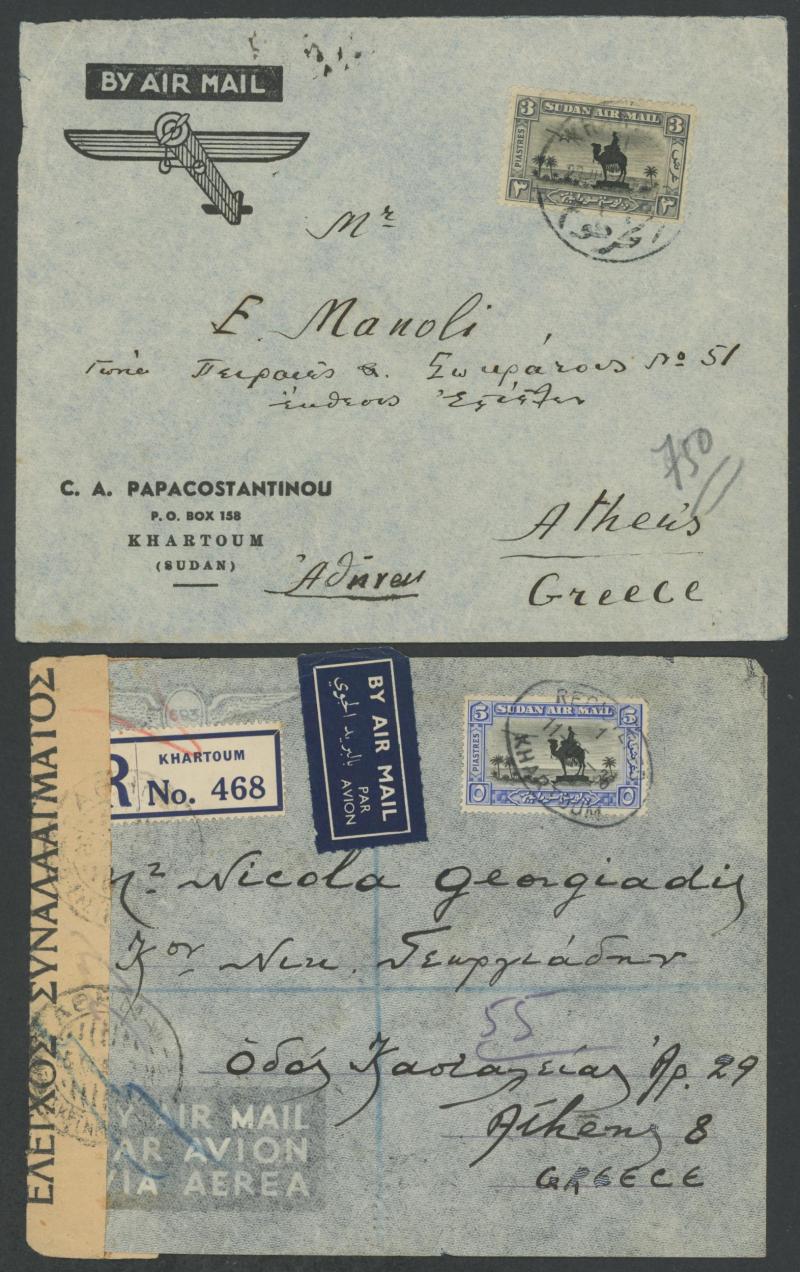 BY AIR MAIL
3 SUDAN AIR MAIL 3
PIASTRES
٣ ٣
Mr
E. Manoli
Γωνία Πειραιώς & Σωκράτους No 51
έκθεσις Επίπλων
750
C. A. PAPACOSTANTINOU
P.O. BOX 158
KHARTOUM
(SUDAN)
Αθήναι
Athens
Greece
ΕΛΕΓΧΟΣ ΣΥΝΑΛΛΑΓΜΑΤΟΣ
693
R KHARTOUM
No. 468
BY AIR MAIL
بالبريد الجوي
PAR AVION
5 SUDAN AIR MAIL 5
PIASTRES
٥ ٥
KHARTOUM
Mr Nicola Georgiadis
Κον Νικ. Γεωργιάδην
55
Οδός Κασταλείας Αρ. 29
Athens 8
GREECE
BY AIR MAIL
PAR AVION
VIA AEREA